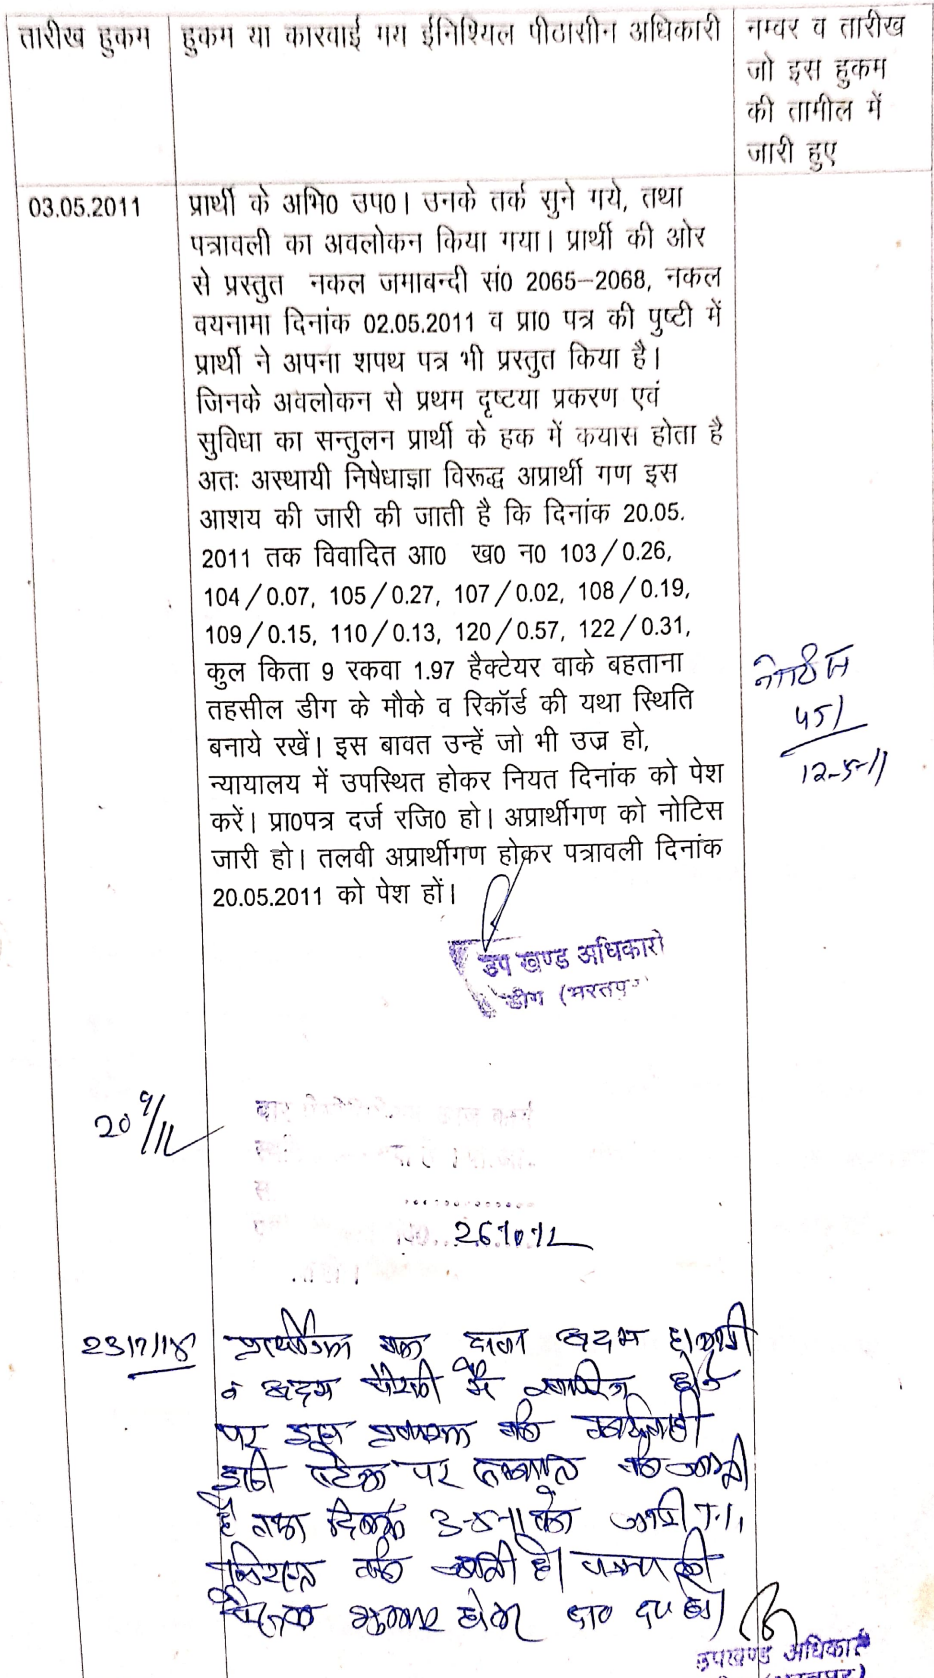 तारीख हुकम
हुकम या कारवाई मय ईनिश्यिल पीठासीन अधिकारी
नम्वर व तारीख
जो इस हुकम
की तामील में
जारी हुए
03.05.2011
प्रार्थी के अभि0 उप0। उनके तर्क सुने गये, तथा
पत्रावली का अवलोकन किया गया। प्रार्थी की ओर
से प्रस्तुत नकल जमाबन्दी सं0 2065–2068, नकल
वयनामा दिनांक 02.05.2011 व प्रा0 पत्र की पुष्टी में
प्रार्थी ने अपना शपथ पत्र भी प्रस्तुत किया है।
जिनके अवलोकन से प्रथम दृष्टया प्रकरण एवं
सुविधा का सन्तुलन प्रार्थी के हक में कयास होता है
अतः अस्थायी निषेधाज्ञा विरूद्ध अप्रार्थी गण इस
आशय की जारी की जाती है कि दिनांक 20.05.
2011 तक विवादित आ0 ख0 न0 103/0.26,
104/0.07, 105/0.27, 107/0.02, 108/0.19,
109/0.15, 110/0.13, 120/0.57, 122/0.31,
कुल किता 9 रकवा 1.97 हैक्टेयर वाके बहताना
तहसील डीग के मौके व रिकॉर्ड की यथा स्थिति
बनाये रखें। इस बावत उन्हें जो भी उज्र हो,
न्यायालय में उपस्थित होकर नियत दिनांक को पेश
करें। प्रा0पत्र दर्ज रजि0 हो। अप्रार्थीगण को नोटिस
जारी हो। तलवी अप्रार्थीगण होकर पत्रावली दिनांक
20.05.2011 को पेश हों।
नोटिस
451
12-5-11
उप खण्ड अधिकारी
डीग (भरतपुर
20 9/12
23/7/18
व अदम पैरवी में खारिज होने
पर इस प्रकरण की कार्यवाही
इसी स्टेज पर समाप्त की जाती
है तथा दिनांक 3-5-11 को जारी T.I.
निरस्त की जाती है। पत्रावली
फैसल शुमार होकर दा0 द0 हो।
उपखण्ड अधिकारी